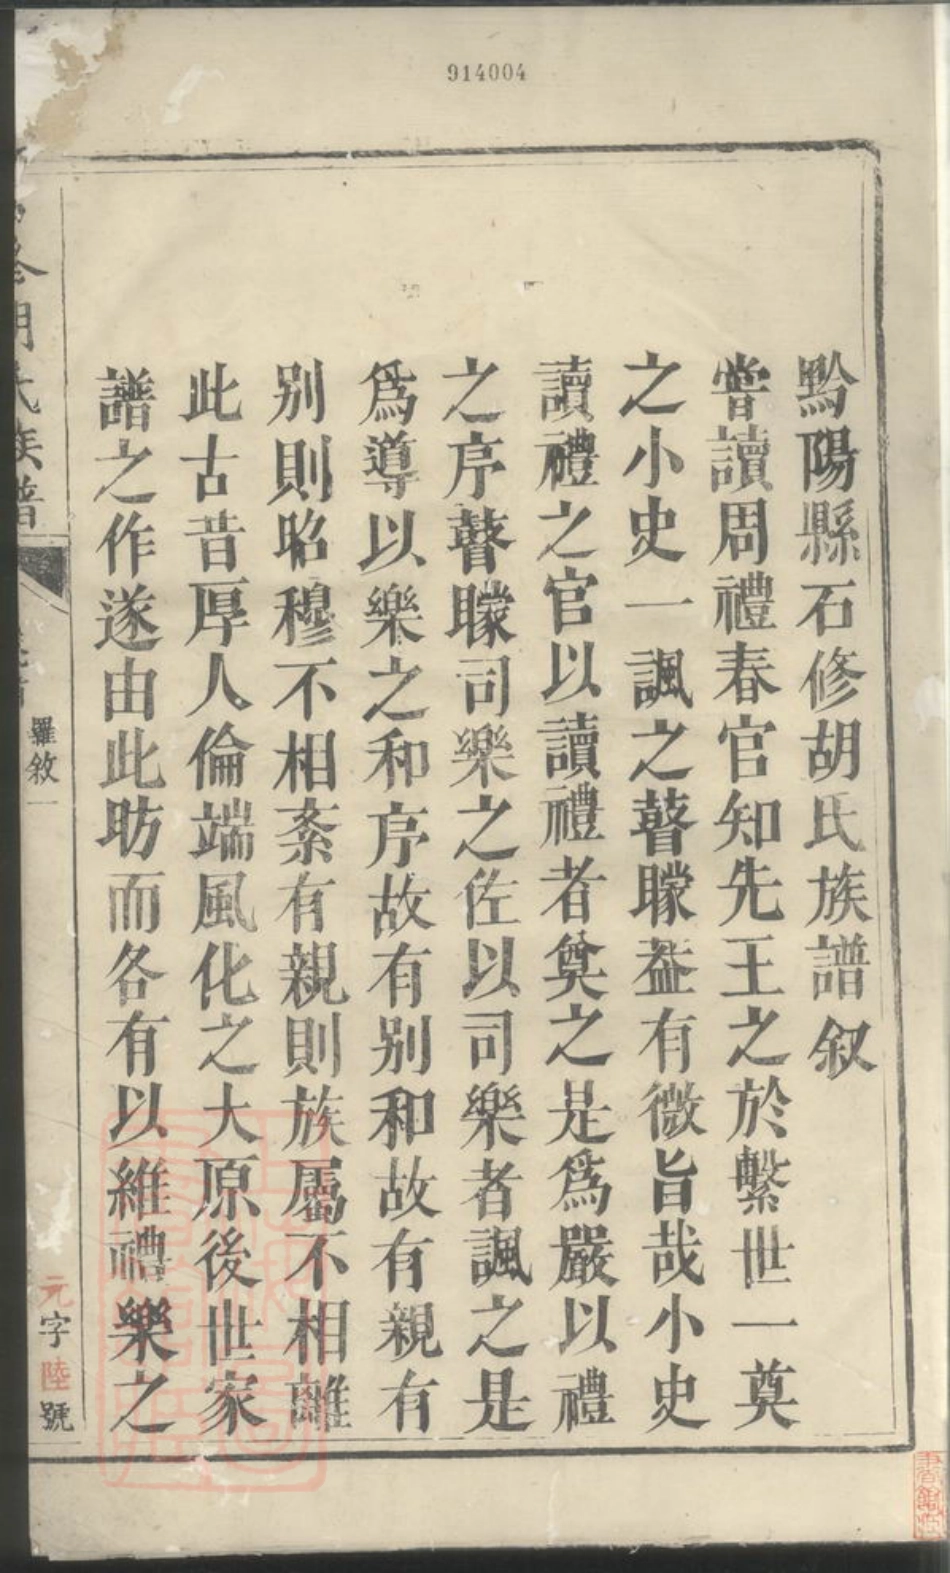 914004
黔陽縣石修胡氏族譜叙
嘗讀周禮春官知先王之於繫世一奠
之小史一諷之瞽矇葢有微旨哉小史
讀禮之官以讀禮者奠之是爲嚴以禮
之序瞽矇司樂之佐以司樂者諷之是
爲導以樂之和序故有别和故有親有
别則昭穆不相紊有親則族屬不相離
此古昔厚人倫端風化之大原後世家
譜之作遂由此昉而各有以維禮樂之
胡氏族譜
羅敘一
元字陸號